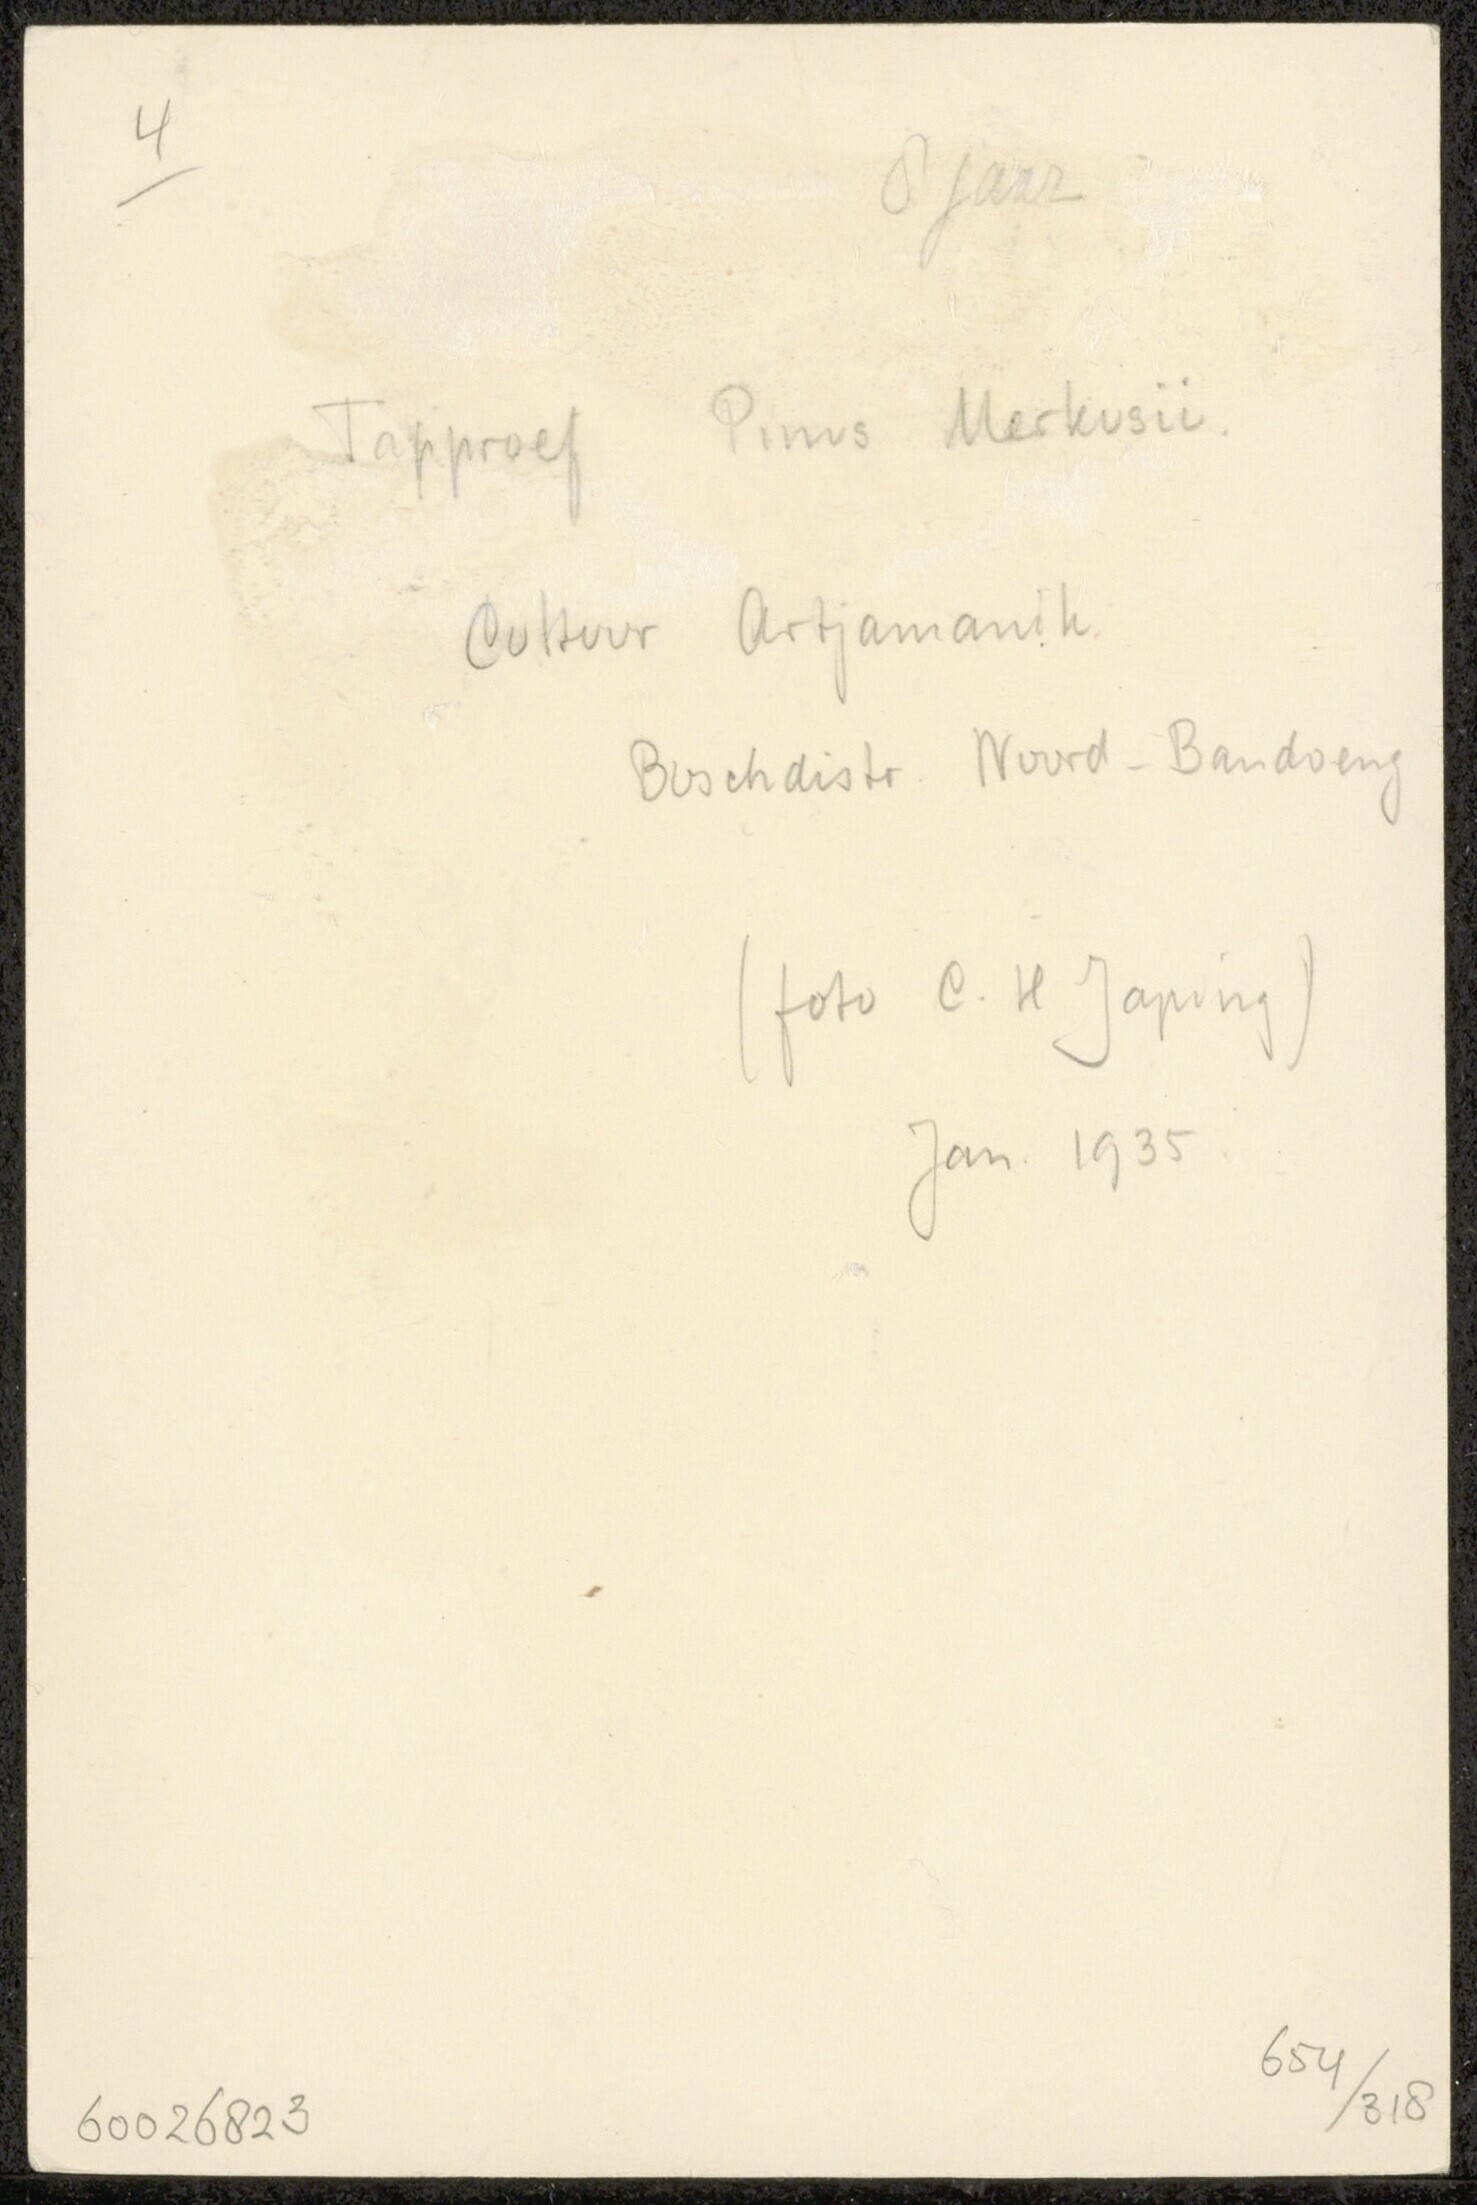 4
8 jaar
Tapproef Pinus Merkusii.
Cultuur Artjamanik.
Boschdistr. Noord-Bandoeng
(foto C. H Japing)
Jan. 1935.
654/318
60026823